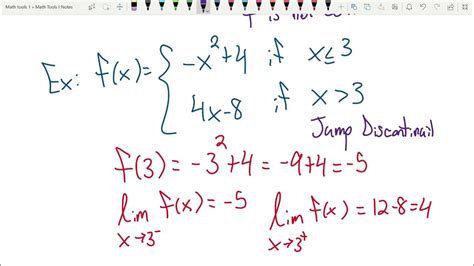 Math tools 1 » Math Tools I Notes
f is not co
Ex: f(x) = { -x²+4 ; if x≤3
4x-8 ; if x>3
Jump Discontinuit
f(3) = -3²+4 = -9+4 = -5
lim f(x) = -5 lim f(x) = 12-8=4
x→3⁻ x→3⁺